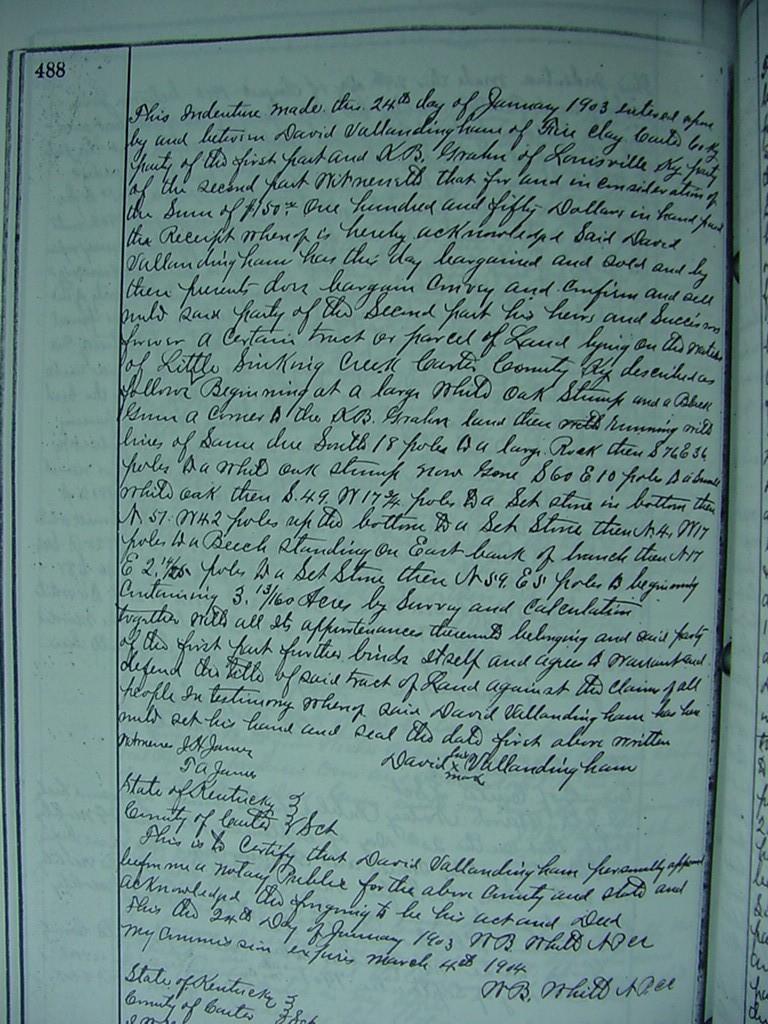 488
This Indenture made this 24th day of January 1903 entered upon
by and between David Vallandingham of Fire Clay Carter Co Ky
party of the first part and K.B. Grahn of Louisville Ky party
of the second part Witnesseth that for and in consideration of
the Sum of $150.00 One hundred and fifty Dollars in hand paid
the Receipt whereof is hereby acknowledged Said David
Vallandingham has this day bargained and sold and by
these presents does bargain Convey and Confirm and sell
unto said party of the Second part his heirs and Successors
forever a Certain tract or parcel of Land lying on the waters
of Little Sinking Creek Carter County Ky described as
follows Beginning at a large White Oak Stump and a Black
Gum a Corner to the K.B. Grahn land then with running with
lines of Same due South 18 poles to a large Rock then S 76 E 36
poles to a White oak stump now gone S 60 E 10 poles to a Small
White oak then S. 49. W 17 3/4 poles to a Set stone in bottom then
N 51. W 42 poles up the bottom to a Set Stone then N. 4. W 17
poles to a Beech standing on East bank of branch then N 17
E 2, 14/25 poles to a Set Stone then N 59. E 51 poles to beginning
Containing 3. 13/160 Acres by Survey and Calculation
together with all its appurtenances thereunto belonging and said party
of the first part further binds itself and agrees to warrant and
defend the title of said tract of Land against the Claims of all
people In testimony whereof said David Vallandingham has here
unto set his hand and seal the date first above written
Witness J H James
David his x mark Vallandingham
T A James
State of Kentucky }
County of Carter } Sct
This is to Certify that David Vallandingham personally appeared
before me a notary Public for the above County and state and
acknowledged the foregoing to be his act and Deed
This the 24th Day of January 1903 W B Whitt N P C C
My Commission expires March 4th 1904
W B. Whitt N P C C
State of Kentucky }
County of Carter } Sct